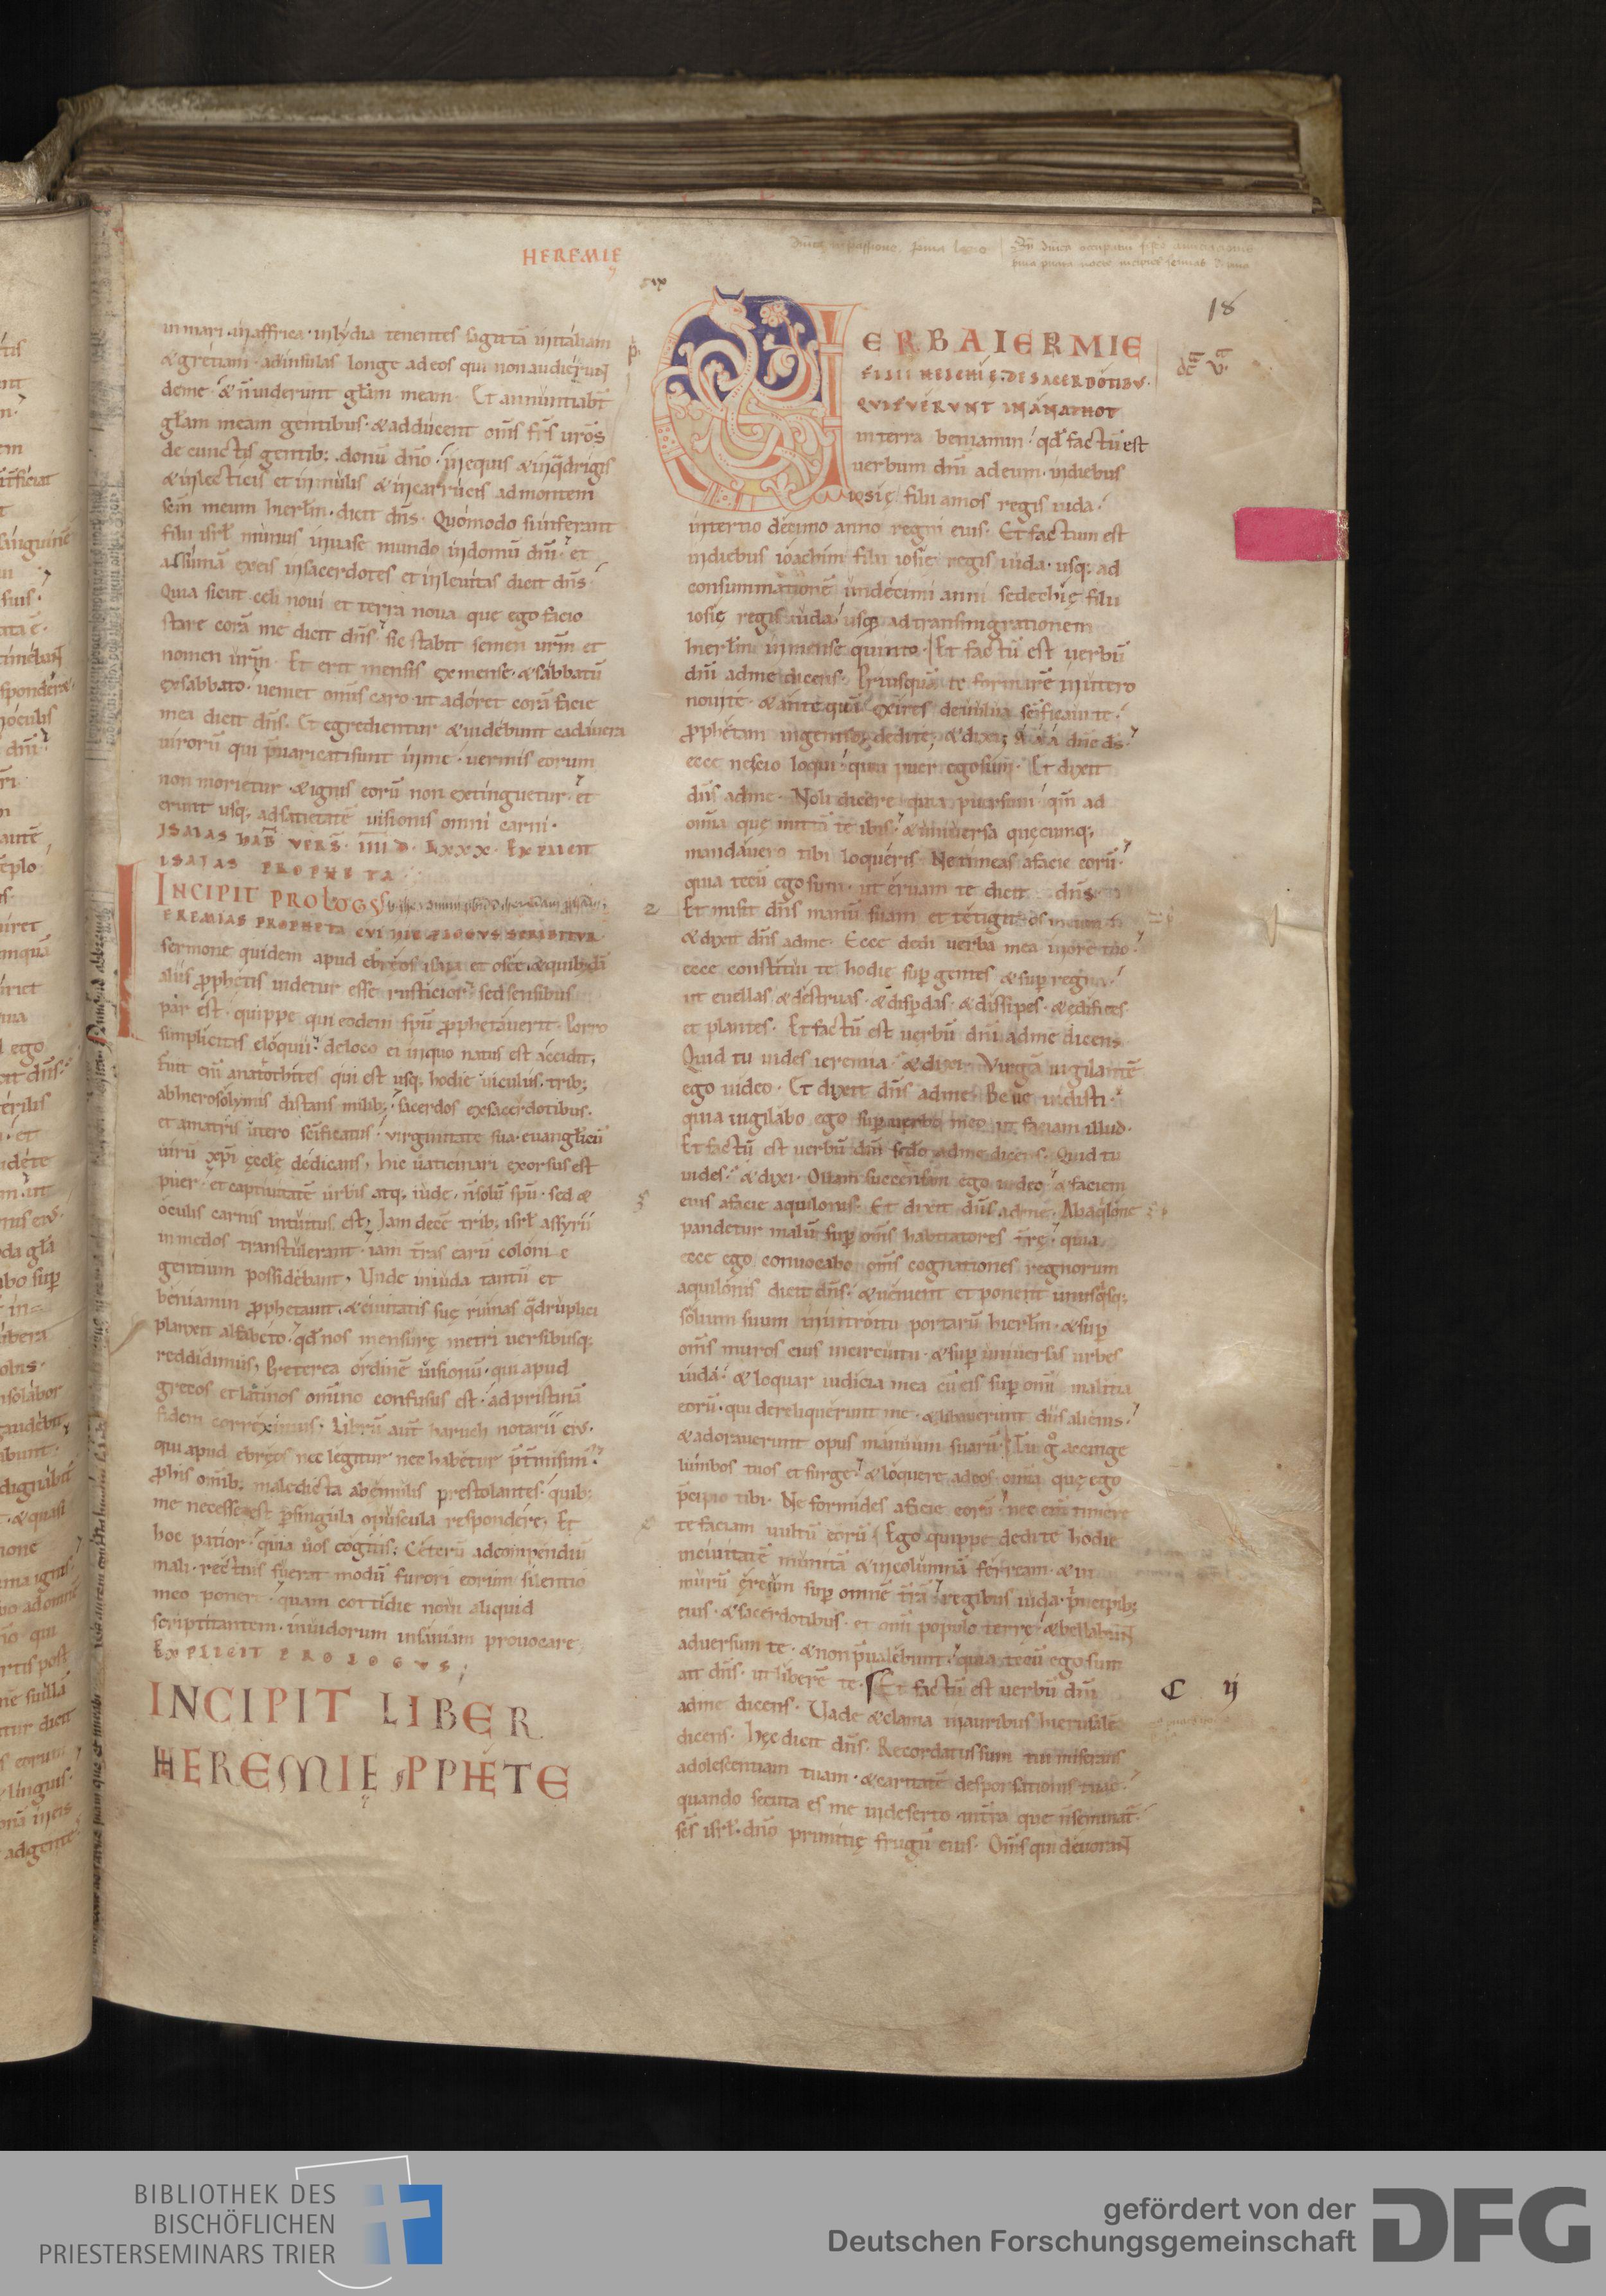 HEREMIĘ
18
in mari · in affrica · in lydia tenentes sagittā in italiam
& gretiam · ad insulas longe ad eos qui non audierun̄
de me · & n̄ uiderunt gl̄am meam · Et annuntiab̄t
gl̄am meam gentibus · & adducent om̄s fr̄s uros̄
de cunctis gentib; donū dn̄o · in equis & in q̄drigis
& in lecticis et in mulis & in carrucis ad montem
sc̄m meum hierl̄m · dicit dn̄s · Quomodo si inferant
filii isrł munus in uase mundo in domū dn̄i · et
assumā ex eis in sacerdotes et in leuitas dicit dn̄s
Quia sicut celi noui et terra noua que ego facio
stare corā me dicit dn̄s · sic stabit semen urm̄ et
nomen urm̄ · Et erit mensis ex mense · & sabbatū
ex sabbato · ueniet omnis caro ut adoret corā facie
mea dicit dn̄s · Et egredientur & uidebunt cadauera
uirorū qui p̄uaricati sunt in me · uermis eorum
non morietur · & ignis eorū non extinguetur · et
erunt usq; ad satietatē uisionis omni carni ·
ISAIAS HAB̄ VERS̄ · IIII D · LXXX · EXPLICIT
ISAIAS PROPHETA
INCIPIT PROLOGVS
IEREMIAS PROPHETA CVI HIC PROLOGVS SCRIBITVR
sermone quidem apud ebreos isaia et osee & quibusdā
aliis p̄phetis uidetur esse rusticior · sed sensibus
par est · quippe qui eodem spū p̄phetauerit · Porro
simplicitas eloquii · de loco ei in quo natus est accidit,
fuit eni anatothites qui est usq; hodie uiculus · trib;
ab hierosolymis distans milib; · sacerdos ex sacerdotibus ·
et a matris utero sc̄ificatus · uirginitate sua · euanglicū
uirū xp̄i ęcclę dedicans, hic uaticinari exorsus est
puer · et captiuitatē urbis atq; iudę · n̄ solū spū · sed &
oculis carnis intuitus est, Iam decē trib; isrł assyrii
in medos transtulerant · iam t̄ras earū coloni e
gentium possidebant, Unde in iuda tantū et
beniamin p̄phetauit, & ciuitatis suę ruinas q̄druplici
planxit alfabeto · qd̄ nos mensurę metri uersibusq;
reddidimus, Preterea ordinē uisionū · qui apud
grecos et latinos omnino confusus est · ad pristinā
fidem correximus, Librū aut̄ baruch notarii eius ·
qui apud ebreos nec legitur nec habetur p̄t̄misim; ·
p̄ his omīb; maledicta ab emulis prestolantes · quib;
me necesse est p̄ singula opuscula respondere, Et
hoc patior · quia uos cogitis; Ceterū ad compendiū
mali · rectius fuerat modū furori eorum silentio
meo ponere · quam cottidie noui aliquid
scriptitantem · inuidorum insaniam prouocare,
EXPLICIT PROLOGVS;
INCIPIT LIBER
HEREMIĘ PPHETE
VERBA IEREMIE
FILII HELCHIĘ · DE SACERDOTIBVS ·
QVI FVERVNT IN ANATHOT
in terra beniamin · qd̄ factū est
uerbum dn̄i ad eum · in diebus
iosię filii amos regis iuda ·
in tertio decimo anno regni eius · Et factum est
in diebus ioachim filii iosie regis iuda · usq; ad
consummationē undecimi anni sedechię filii
iosię regis iuda · usq; ad transmigrationem
hierl̄m in mense quinto · Et factū est uerbū
dn̄i ad me dicens · Priusquā te formarē in utero
noui te · & ante quā exires de uulua sc̄ificaui te ·
p̄phetam in gentib; dedi te, & dixi; A a a dn̄e ds̄ ·
ecce nescio loqui · quia puer ego sum · Et dixit
dn̄s ad me · Noli dicere quia puer sum · qm̄ ad
om̄ia quę mittā te ibis · & uniuersa quęcunq;
mandauero tibi loqueris · Ne timeas a facie eorū ·
quia tecū ego sum · ut eruam te dicit dn̄s ·
Et misit dn̄s manū suam et tetigit os meum ·
& dixit dn̄s ad me · Ecce dedi uerba mea in ore tuo ·
ecce constitui te hodie sup̄ gentes & sup̄ regna ·
ut euellas & destruas · & disp̄das · & dissipes · & edifices ·
et plantes · Et factū est uerbū dn̄i ad me dicens ·
Quid tu uides ieremia · & dixi · Virgā uigilantē
ego uideo · Et dixit dn̄s ad me · Bene uidisti ·
quia uigilabo ego sup̄ uerbo meo ut faciam illud ·
Et factū est uerbū dn̄i scdo ad me dicens · Quid tu
uides · & dixi · Ollam succensam ego uideo · & faciem
eius a facie aquilonis · Et dixit dn̄s ad me · Ab aq̄lone
pandetur malū sup̄ om̄s habitatores t̄rę · quia
ecce ego conuocabo om̄s cognationes regnorum
aquilonis dicit dn̄s · & uenient et ponent unusq̄sq;
solium suum in introitu portarū hierl̄m · & sup̄
om̄s muros eius in circuitu · & sup̄ uniuersas urbes
iuda · & loquar iudicia mea cū eis sup̄ om̄i malitia
eorū · qui dereliquerunt me · & libauerunt diis alienis ·
& adorauerunt opus manuum suarū · Tu g̊ accinge
lumbos tuos et surge · & loquere ad eos om̄ia quę ego
p̄cipio tibi · Ne formides a facie eorū · nec eni timere
te faciam uultū eorū · Ego quippe dedi te hodie
in ciuitatē munitā & in columnā ferream · & in
murū ęreum sup̄ omnē t̄rā · regibus iuda · p̄ncipib;
eius · & sacerdotibus · et om̄i populo terrę · & bellabun̄
aduersum te · & non p̄ualebunt · quia tecū ego sum
ait dn̄s · ut liberē te · Et factū est uerbū dn̄i
C ij
ad me dicens · Uade & clama in auribus hierusalē
dicens · Hęc dicit dn̄s · Recordatus sum tui miserans
adolescentiam tuam · & caritatē desponsationis tuae ·
quando secuta es me in deserto · in t̄ra que n̄ seminat̄ ·
sc̄s isrł · dn̄o primitię frugū eius · Om̄s qui deuoran̄
BIBLIOTHEK DES
BISCHÖFLICHEN
PRIESTERSEMINARS TRIER
gefördert von der
Deutschen Forschungsgemeinschaft
DFG